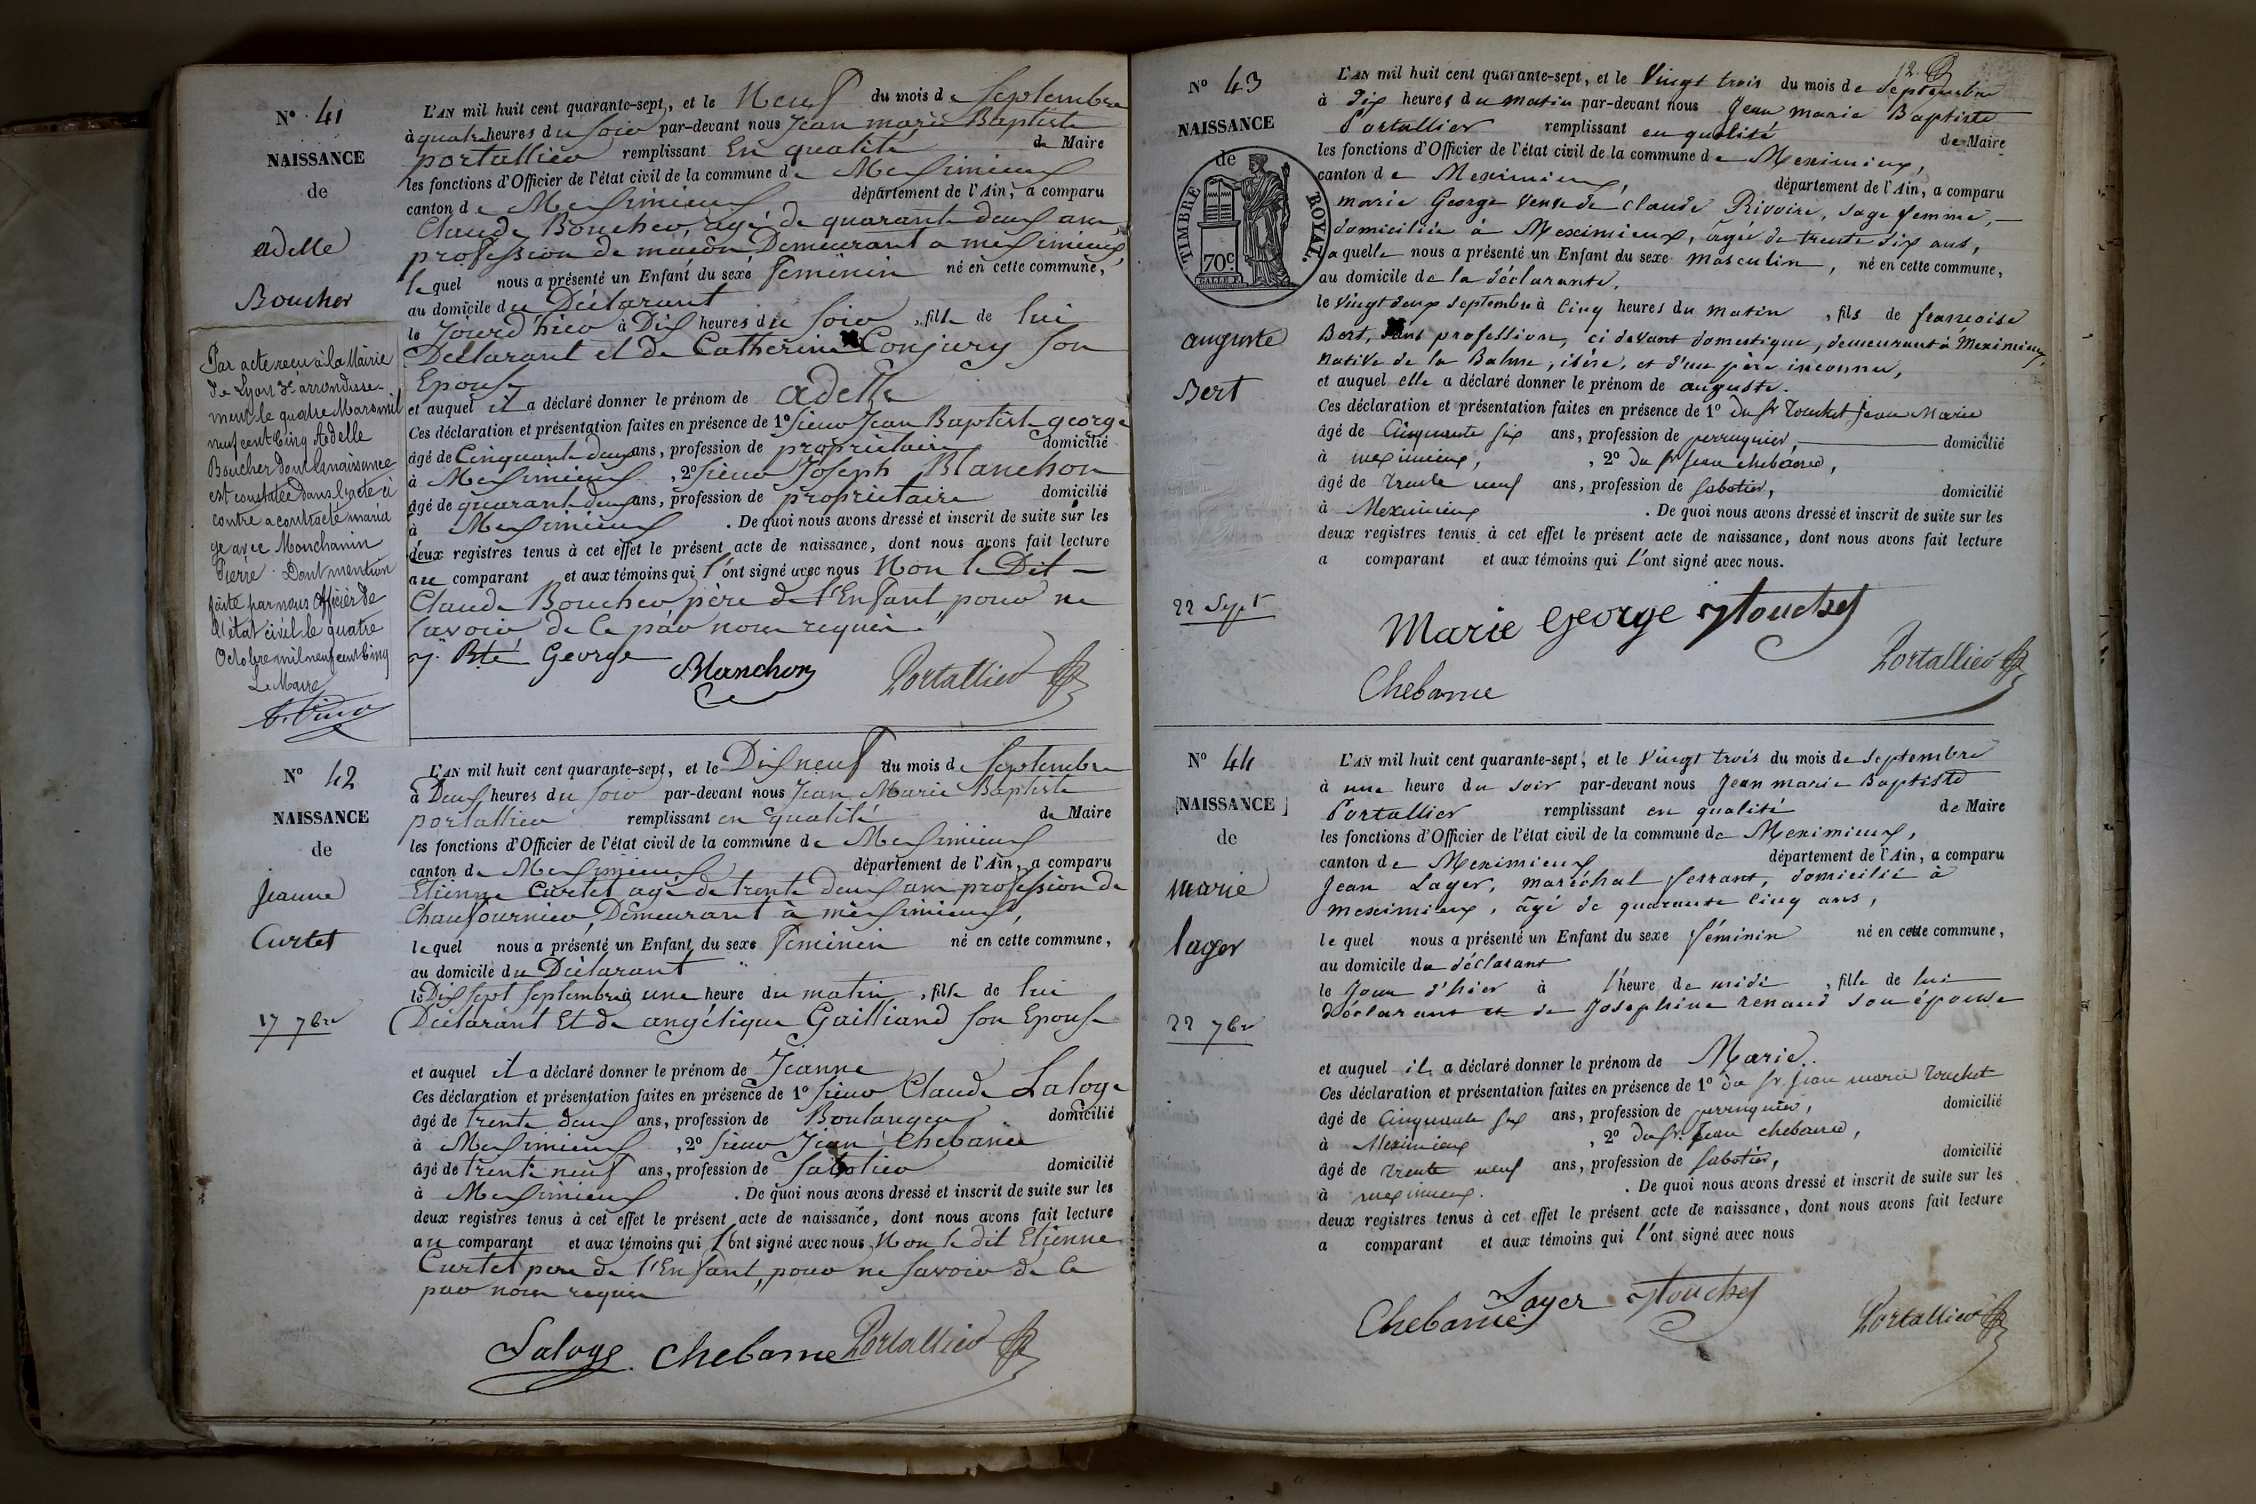 N° 41
NAISSANCE
de
adelle
Boucher
Par acte reçu à la Mairie
de Lyon 3e arrondisse-
ment le quatre Mars mil
neuf cent cinq Adelle
Boucher dont la naissance
est constatée dans l'acte ci
contre a contracté maria
ge avec Monchanin
Pierre. Dont mention
faite par nous officier de
l'état civil le quatre
Octobre mil neuf cent cinq
Le Maire
L'AN mil huit cent quarante-sept, et le Neuf du mois de Septembre
à quatre heures du soir par-devant nous Jean marie Baptiste
portallier remplissant En qualité de Maire
les fonctions d'Officier de l'état civil de la commune de Meximieux
canton de Meximieux département de l'Ain, a comparu
Claude Boucher, agé de quarante deux ans
profession de maçon Demeurant a meximieux,
lequel nous a présenté un Enfant du sexe feminin né en cette commune,
au domicile du Déclarant
le Jourd'hier à Dix heures du soir, fille de lui
Déclarant et de Catherine Conjury son
Epouse
et auquel il a déclaré donner le prénom de adelle
Ces déclaration et présentation faites en présence de 1° sieur Jean Baptiste george
âgé de Cinquante deux ans, profession de propriétaire domicilié
à Meximieux, 2° sieur Joseph Blanchon
âgé de quarante deux ans, profession de propriétaire domicilié
à Meximieux. De quoi nous avons dressé et inscrit de suite sur les
deux registres tenus à cet effet le présent acte de naissance, dont nous avons fait lecture
au comparant et aux témoins qui l'ont signé avec nous Non le Dit
Claude Boucher père de l'Enfant pour ne
savoir de ce par nous requis.
J. Bte George Blanchon Portallier
N° 42
NAISSANCE
de
Jeanne
Curtet
17 7bre
L'AN mil huit cent quarante-sept, et le Dix neuf du mois de Septembre
à Deux heures du soir par-devant nous Jean Marie Baptiste
portallier remplissant en qualité de Maire
les fonctions d'Officier de l'état civil de la commune de Meximieux
canton de Meximieux département de l'Ain, a comparu
Etienne Curtet agé de trente deux ans profession de
Chaufournier, Demeurant à méximieux,
lequel nous a présenté un Enfant du sexe feminin né en cette commune,
au domicile du Déclarant
le Dix sept Septembre à une heure du matin, fille de lui
Déclarant Et de angélique Gailliand son Epouse
et auquel il a déclaré donner le prénom de Jeanne
Ces déclaration et présentation faites en présence de 1° sieur Claude Laloge
âgé de trente deux ans, profession de Boulanger domicilié
à Meximieux, 2° sieur Jean Chebance
âgé de trente neuf ans, profession de sabotier domicilié
à Meximieux. De quoi nous avons dressé et inscrit de suite sur les
deux registres tenus à cet effet le présent acte de naissance, dont nous avons fait lecture
au comparant et aux témoins qui l'ont signé avec nous Non le dit Etienne
Curtet pere de l'Enfant, pour ne savoir de ce
par nous requis
Laloge. Chebance Portallier
12.
N° 43
NAISSANCE
de
TIMBRE ROYAL.
70c
auguste
Bert
22 Sept
L'AN mil huit cent quarante-sept, et le Vingt trois du mois de Septembre
à dix heures du matin par-devant nous Jean marie Baptiste
Portallier remplissant en qualité de Maire
les fonctions d'Officier de l'état civil de la commune de Meximieux,
canton de Meximieux, département de l'Ain, a comparu
marie George veuve de Claude Rivoire, sage femme,
domiciliée à Meximieux, âgée de trente dix ans,
laquelle nous a présenté un Enfant du sexe masculin, né en cette commune,
au domicile de la déclarante,
le Vingt deux Septembre à cinq heures du matin, fils de francoise
Bert, sans profession, ci devant domestique, demeurant à Meximieux,
native de la Balme, isère, et d'un père inconnu,
et auquel elle a déclaré donner le prénom de auguste.
Ces déclaration et présentation faites en présence de 1° du sr Touchet Jean Marie
âgé de Cinquante six ans, profession de perruquier, domicilié
à meximieux, 2° du sr Jean chebance,
âgé de trente neuf ans, profession de sabotier, domicilié
à Meximieux. De quoi nous avons dressé et inscrit de suite sur les
deux registres tenus à cet effet le présent acte de naissance, dont nous avons fait lecture
a comparant et aux témoins qui l'ont signé avec nous.
Marie George Touchet
Portallier
Chebance
N° 44
NAISSANCE
de
marie
lager
22 7br
L'AN mil huit cent quarante-sept, et le Vingt trois du mois de Septembre
à une heure du soir par-devant nous Jean marie Baptiste
Portallier remplissant en qualité de Maire
les fonctions d'Officier de l'état civil de la commune de Meximieux,
canton de Meximieux département de l'Ain, a comparu
Jean Lager, maréchal ferrant, domicilié à
meximieux, âgé de quarante cinq ans,
lequel nous a présenté un Enfant du sexe féminin né en cette commune,
au domicile du déclarant
le Jour d'hier à l'heure de midi, fille de lui
déclarant et de Josephine renaud son épouse
et auquel il a déclaré donner le prénom de Marie.
Ces déclaration et présentation faites en présence de 1° du sr jean marie Touchet
âgé de Cinquante six ans, profession de perruquier, domicilié
à Meximieux, 2° du sr. Jean chebance,
âgé de trente neuf ans, profession de sabotier, domicilié
à meximieux. De quoi nous avons dressé et inscrit de suite sur les
deux registres tenus à cet effet le présent acte de naissance, dont nous avons fait lecture
a comparant et aux témoins qui l'ont signé avec nous
Lager Touchet
Chebance Portallier